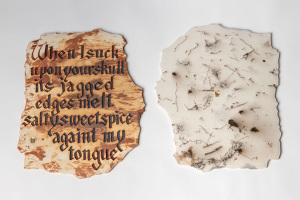 When I suck
upon your skull
its jagged
edges melt
salty sweet spice
againt my
tongue